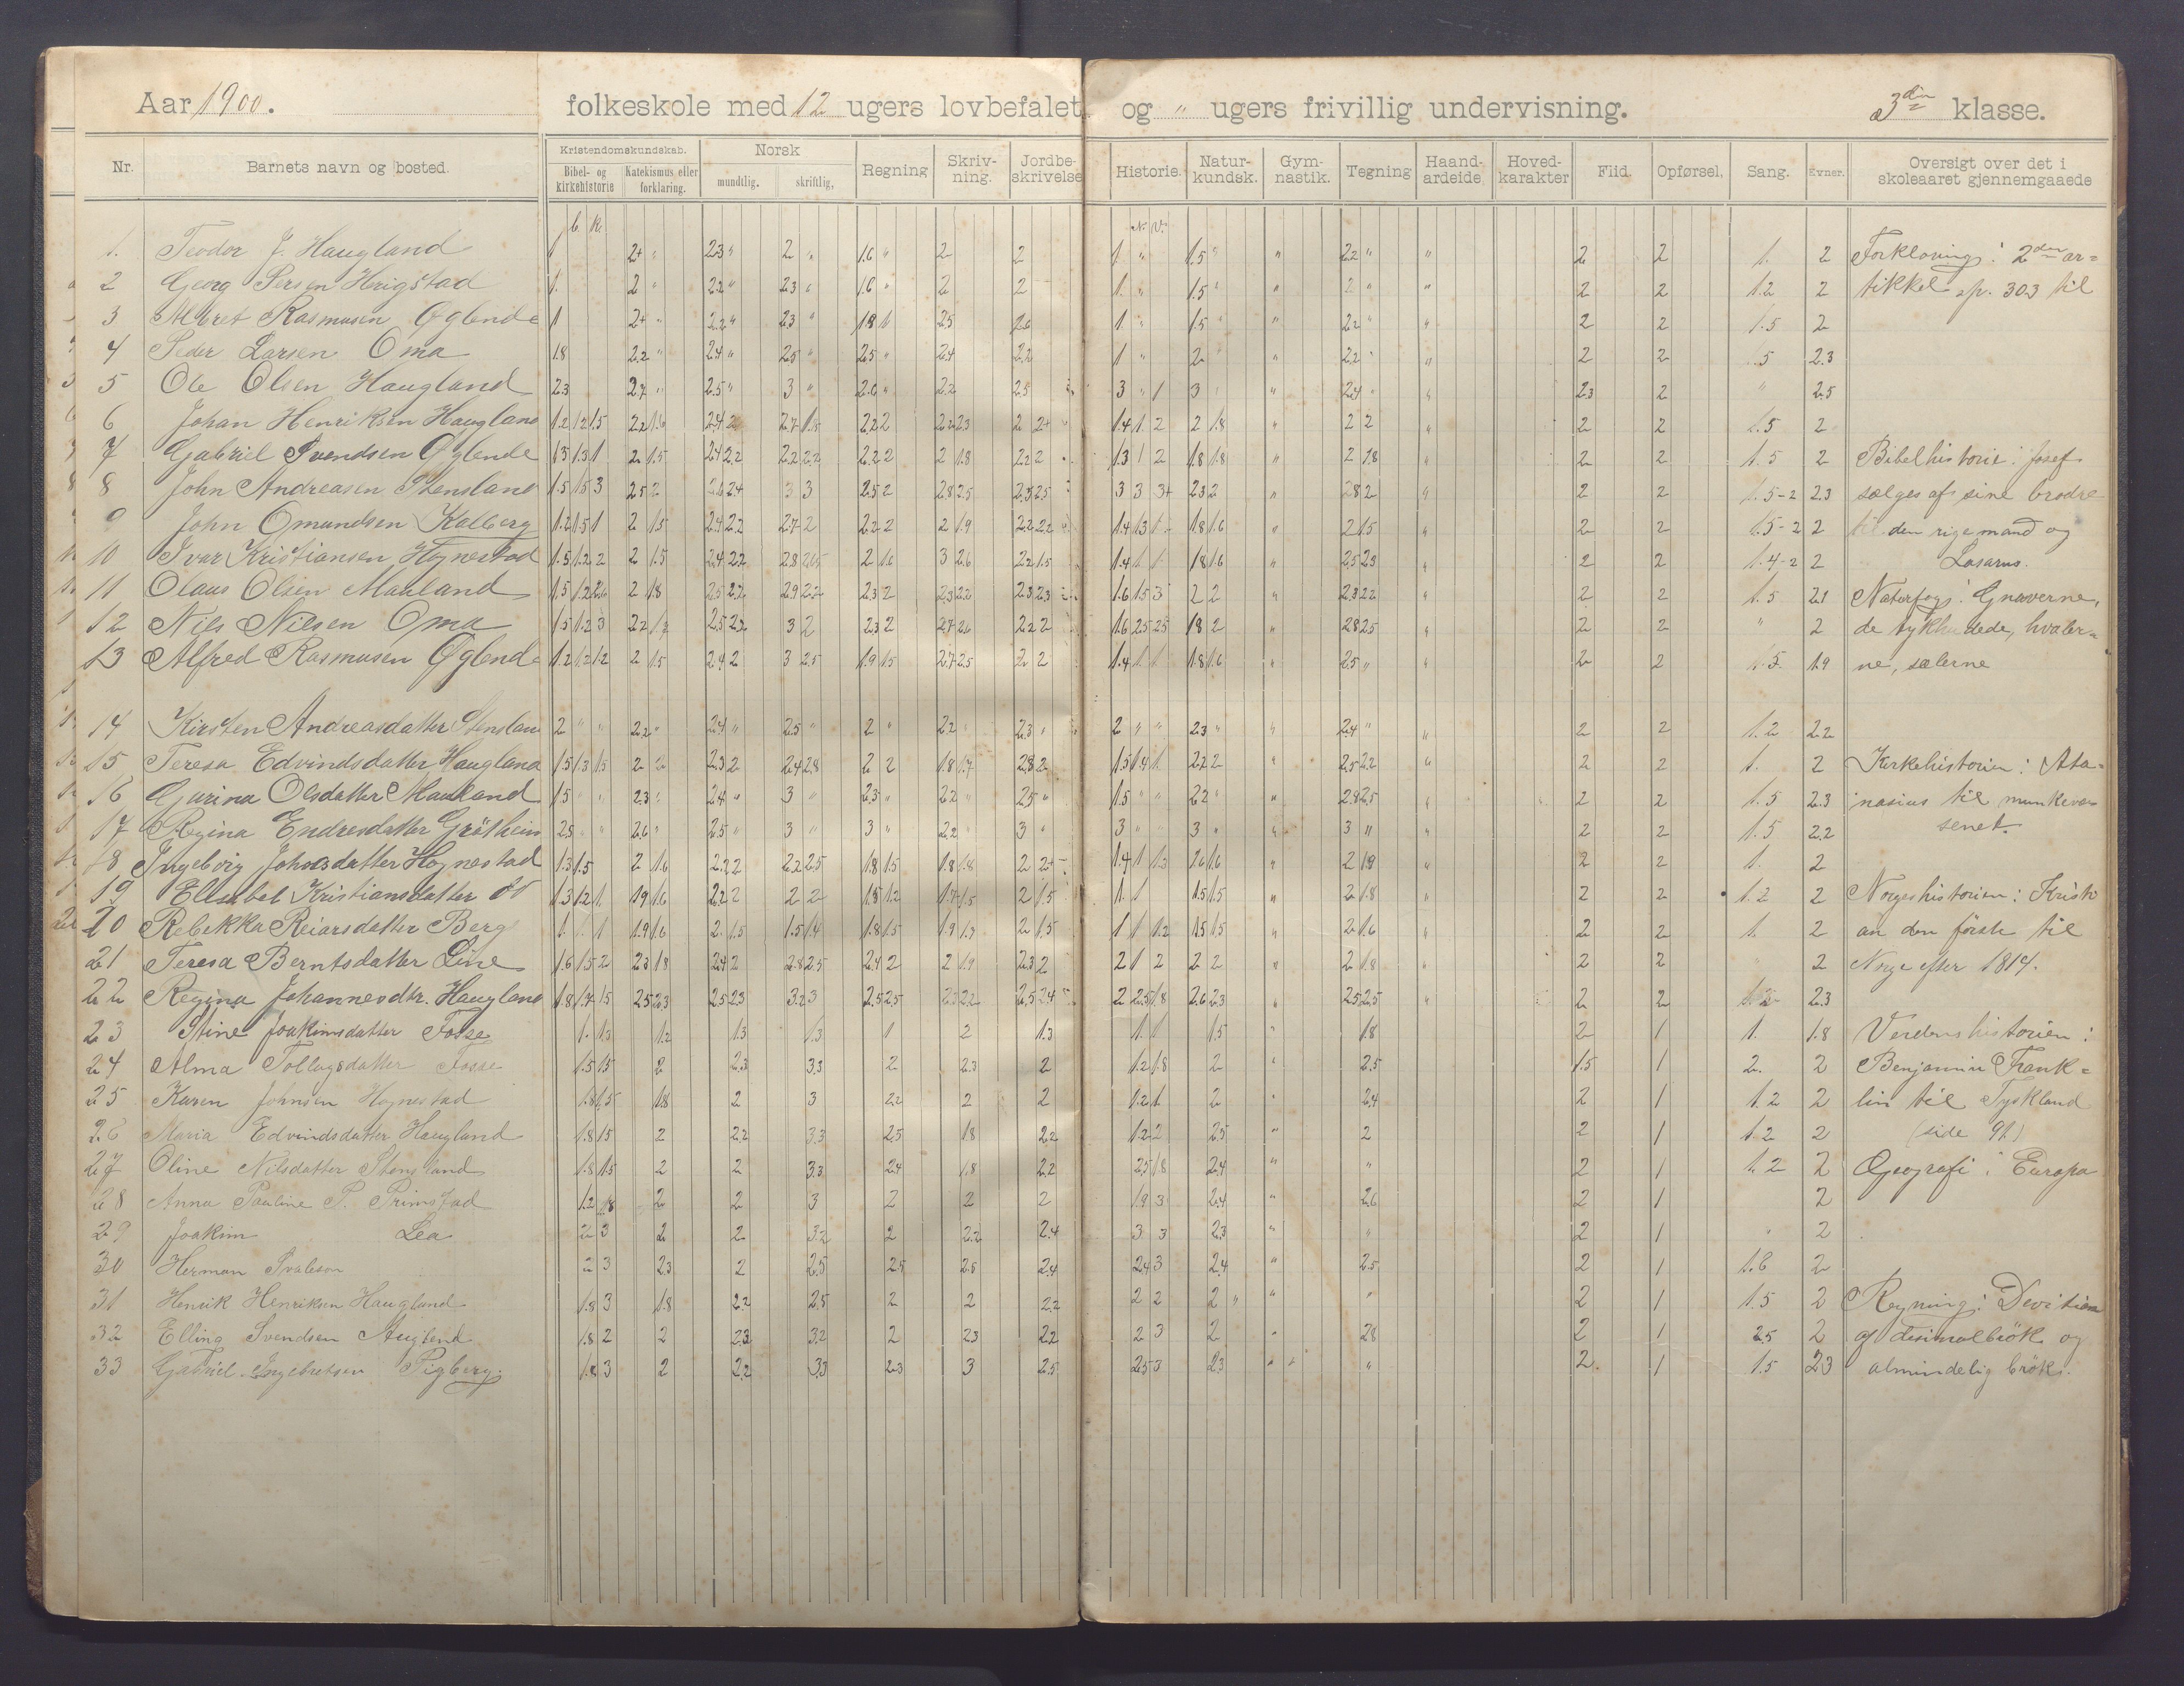 Aar 1900. folkeskole med 12 ugers lovbefalet og " ugers frivillig undervisning. 3die klasse.
Nr. Barnets navn og bosted. Kristendomskundskab. Norsk Regning Skriv-ning. Jordbe-skrivelse Historie. Natur-kundsk. Gym-nastik. Tegning Haand-arbeide Hoved-karakter Flid. Opførsel, Sang. Evner. Oversigt over det i skoleaaret gjennemgaaede
Bibel- og kirkehistorie Katekismus eller forklaring. mundtlig. skriftlig,
b. K. N. V.
1. Teodor J. Haugland 1 2+ " 2.3 " 2 " 1.6 " 2 2 1 " 1.5 " " 2.2 " " 2 2 1. 2
2 Georg Persen 1. 2 " 2.2 " 2.3 " 1.6 " 2 2 1. " 1.5 " " 2 " " 2 2 1.2 2
3 Albret Rasmusen Øglende 1 2+ " 2.2 " 2.3 " 1.8 1 2.5 2.6 1 " 1.5 " " 2.2 " " 2 2 1.5 2
4 Peder Larsen Oma 1.8 2.2 " 2.4 " 2.5 " 2.5 " 2.4 2.2 1 " 2 " " 2.2 " " 2 2 .5 2.3
5 Ole Olsen Haugland 2.3 2.7 " 2.5 " 3 " 2.6 " 2.2 2.5 3 " 1 3 " " 2.4 " " 2.3 2 " 2.5
6 Johan Henriksen Haugland 1.2 1.2 1.5 2.2 1.6 2.4 2 2.7 1.8 2.2 2 2.2 2.3 2 2+ 1.4 1. 2 2 1.8 " 2 2 " 2 2 1.5 2
7 Gabriel Svendsen Øglende 1.3 1.3 1 2 1.5 2.4 2.2 2.2 2.2 2.2 2 2 1.8 2.2 2 1.3 1 2 1.8 1.8 " 2 1.8 " 2 2 1.5 2
8 John Andreasen Stensland 1.5 1.5 3 2.5 2 2.6 2.4 3 3 2.5 2 2.8 2.5 2.3 2.5 3 3 3+ 2.3 2 " 2.8 2 " 2 2 1.5-2 2.3
9 John Omundsen Kalberg 1.2 1.5 1 2 1.5 2.4 2.2 2.7 2 2.2 2 2 1.9 2.2 2.2 1.4 1.3 1 1.8 1.6 " 2 1.5 " 2 2 1.5-2 2
10 Ivar Kristiansen Hognestad 1.5 1.2 2 2 1.5 2.4 2.2 2.8 2.5 2 1.6 3 2.6 2.2 1.5 1.4 1 1 1.8 1.6 " 2.5 2.3 " 2 2 1.4-2 2
11 Olaus Olsen Mauland 1.5 1.2 2.6 2 1.8 2.5 2.2 2.9 2.2 2.3 2 2.3 2.2 2.3 2.3 1.6 1.5 3 2 2 " 2.3 2.2 " 2 2 1.5 2.1
12 Nils Nilsen Oma 1.5 1.2 3 2.2 1.7 2.5 2.2 3 2 2.3 2 2.7 2.6 2.2 2 1.6 2.5 2.5 1.8 2 " 2.8 2.5 " 2 2 " 2
13 Alfred Rasmusen Øglende 1.2 1.2 1.2 2 1.5 2.4 2 3 2.5 1.9 1.5 2.7 2.5 2 2 1.4 1 1 1.8 1.6 " 2.5 " " 2 2 1.5 1.9
14 Kirsten Andreasdatter Stensland 2 " " 2.2 " 2.4 " 2.5 " 2 " 2.2 " 2.3 " 2 " " 2.3 " " 2.4 " " 2 2 1.2 2.2
15 Teresa Edvindsdatter Haugland 1.5 1.3 1.5 2 2 2.3 2 2.4 2.8 2 2 1.8 1.7 2.8 2 1.5 1.4 1 2.2 2 " 2.5 2.2 " 2 2 1. 2
16 Gurina Olsdatter Mauland 1.5 " " 2.3 " 2.4 " 3 " 2.3 " 2.2 " 2.5 " 1.5 " " 2.2 " " 2.8 2.5 " 2 2 1.5 2.3
17 Regina Endresdatter Grötheim 2.5 " " 2.6 " 2.5 " 3 " 3 " 2.2 " 3 " 3 " " 3 " " 3 " " 2 2 1.5 2.2
18 Ingeborg Johnsdatter Hognestad 1.3 1.5 2 1.6 2.2 2 2.2 2.5 1.8 1.5 1.8 1.8 2 2+ 1.4 1 1.3 1.6 1.6 " 2 1.9 " 2 2 1. 2
19 Elisabet Kristiansdatter do 1.3 1.2 1. 1.9 1.6 2.2 2 2 2 1.8 1.2 1.7 1.5 2 1.5 1. 1 1.5 1.5 " 2 1.8 " 2 2 1.2 2
20 Rebekka Reiarsdatter Berg 1. 1. 1 1.9 1.6 2. 1.5 1.5 1.4 1.8 1.5 1.9 1.7 2 1.5 1 1 1.2 1.5 1.5 " 2 1.6 " 2 2 1. 2
21 Teresa Berntsdatter Line 1.6 1.5 2 2.3 1.8 2.4 2 2.8 2.5 2.4 2 2 1.9 2.3 2 2 1 2 2 2 " 2 1.8 " 2 2 " 2
22 Regina Johannesdtr. Haugland 1.8 1.7 1.5 2.5 2.3 2.5 2.3 3.2 3 2.5 2.5 2.3 2.2 2.5 2.4 2 2.5 1.8 2.6 2.3 " 2.5 2.5 " 2 2 1.2 2.3
23 Stine Joakimsdatter Fosse 1. 1.3 1.2 1.3 1.3 1 2 1.3 1. 1 1.5 " 1.8 2 1 1. 1.8
24 Alma Tollagsdatter Fosse 1.5 1.5 2 2.3 3.3 2 2.3 2 1.2 1.8 2 " 2.5 1.5 1 2. 2
25 Karen Johnsen Hognestad 1.8 1.5 1.8 2 3 2.2 2 2 1.2 1. 2 " 2.4 2 1 1.2 2
26 Maria Edvindsdatter Haugland 1.8 1.5 2 2.2 3.3 2.5 1.8 2.2 1.2 2 2.5 " 2 2 1 1.2 2
27 Oline Nilsdatter Stensland 1.8 1.5 2 2 3.3 2.4 1.8 2.2 2.5 1.8 2.4 " " 2 1 1.2 2
28 Anna Pauline P. Primstad 1.2 1.8 2 2 3 2 2 2 1.9 3 2.4 " 2.6 2 1 2
29 Joakim Lea 2 3 2 2 3.2 2 2.2 2.4 3 3 2.3 " " 2 1 " 2
30 Herman Svaleson 2 3 2.3 2 2.5 2.5 2.8 2.4 2.4 3 2.4 " 2.5 2 1 1.8 2
31 Henrik Henriksen Haugland 1.8 3 1.8 2.2 2.8 2 2 2.2 2 2 2 " " " 2 1 1.5 2
32 Elling Svendsen 1.8 2 2 2.3 3.2 2 2.3 2.2 2 3 2 " 2.8 2 1 2.5 2
33 Gabriel Ingebretsen 1.8 3 2 2.2 3.3 2.3 3 2.5 2.5 3 2.3 " " " 2 1 1.5 2.3
Forklaring: 2den ar=
tikkel sp. 303 til
Bibelhistorie: Josef
sælges af sine brødre
til den rige mand og
Lasarus.
Naturfag: Gnaverne,
de tykhudede, hvaler=
ne, sælerne
Kirkehistorien: Ata=
nasius til munkevæ
senet.
Norgeshistorien: Kristi
an den förste til
Norge efter 1814.
Verdenshistorien:
Benjamin Frank=
lin til Tyskland
(side 91)
Geografi: Europa
Regning: Devition
af desimalbrök og
almindelig brök.